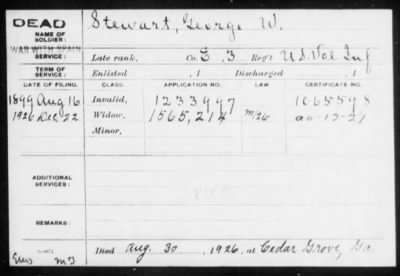 DEAD
NAME OF SOLDIER: Stewart, George W.
WAR WITH SPAIN
SERVICE: Late rank, Co. E. 3 Reg't U.S. Vol. Inf
TERM OF SERVICE: Enlisted , 1 Discharged , 1
DATE OF FILING. CLASS. APPLICATION NO. LAW CERTIFICATE NO.
1899 Aug 16 Invalid, 1233997 1065598
1926 Dec. 22 Widow, 1565,214 M/26 12-27
Minor,
ADDITIONAL SERVICES:
REMARKS:
Died Aug. 30, 1926, at Cedar Grove, Ga.